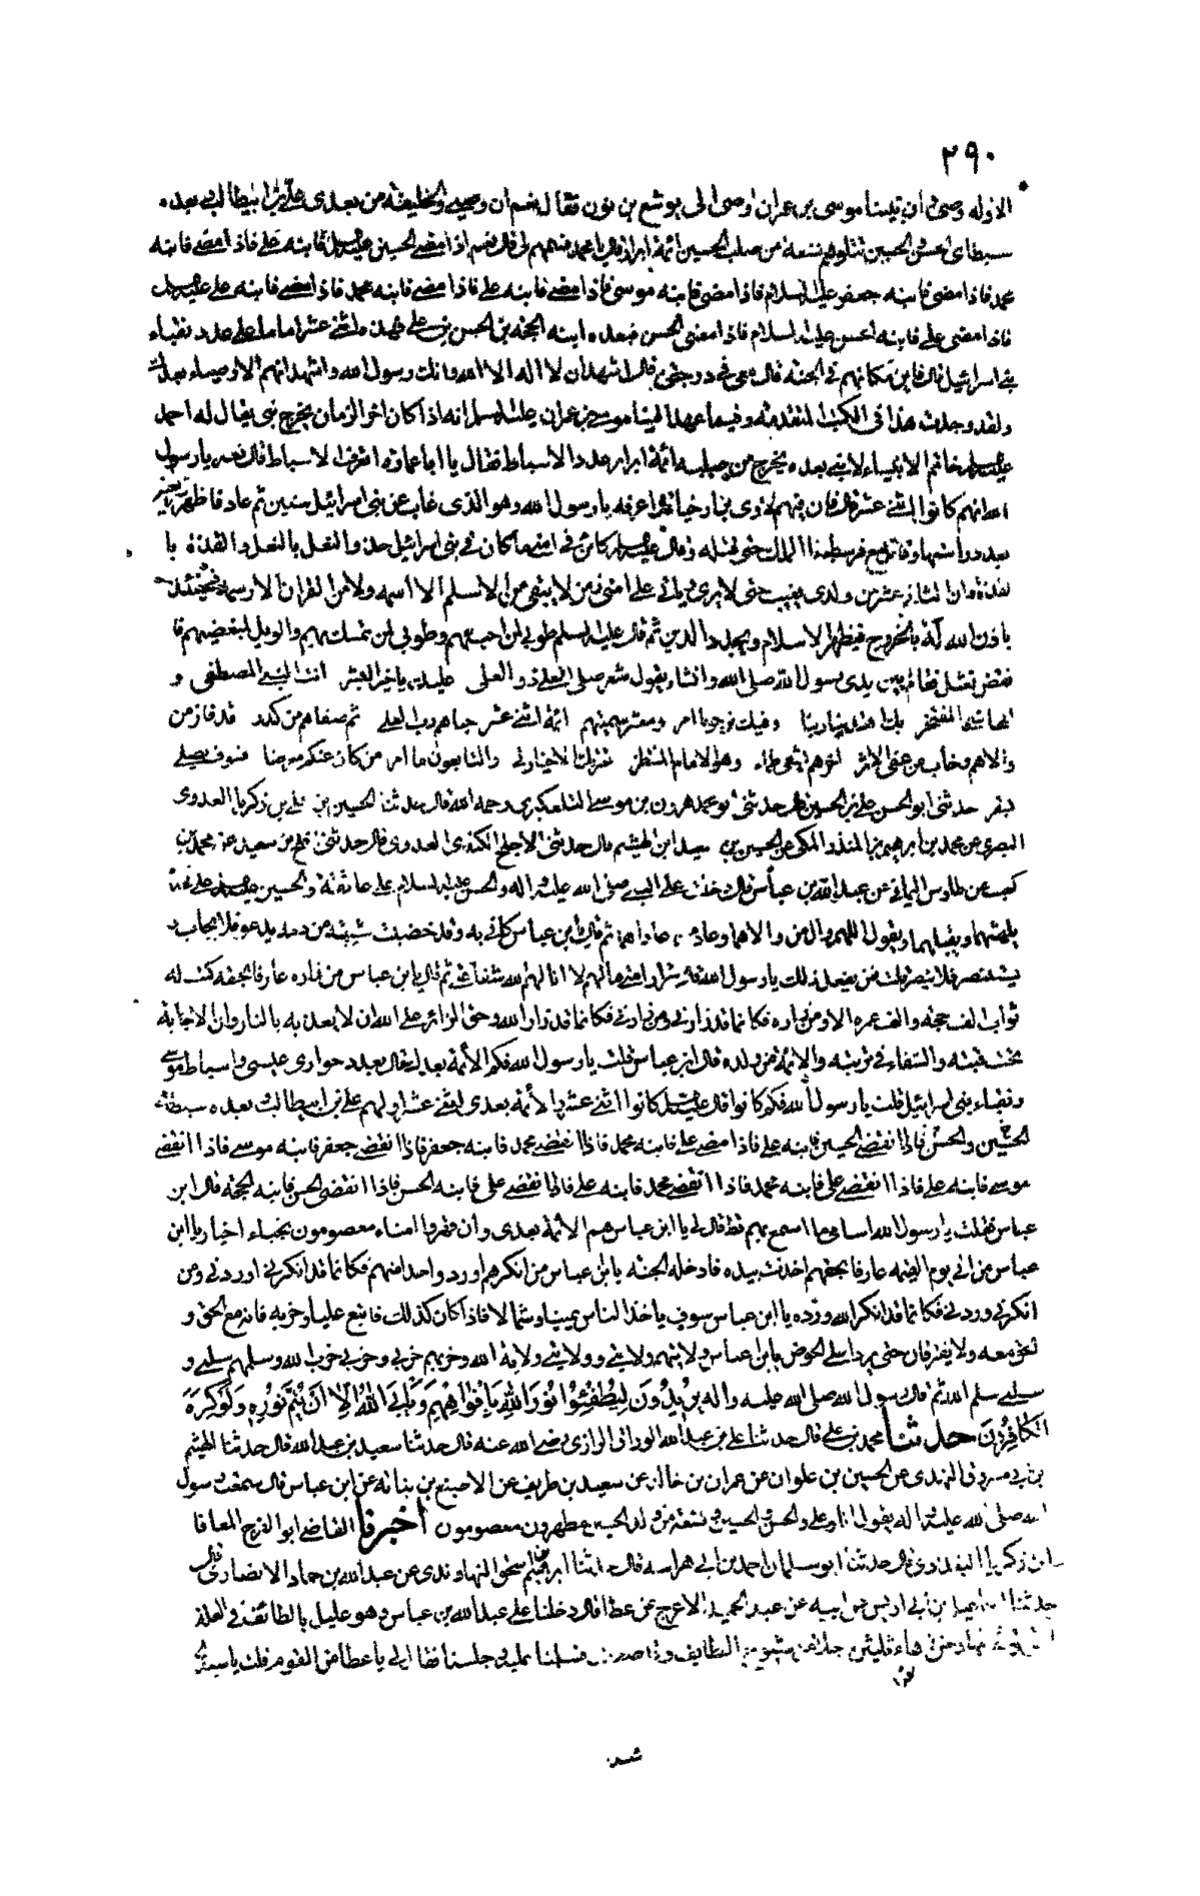 ٢٩٠
الا وله وصى وان نبينا موسى بن عمران اوصى الى يوشع بن نون فقال نعم ان وصيى والخليفة من بعدى على بن ابيطالب وبعده
سبطاى الحسن والحسين تتلوهم تسعة من صلب الحسين ائمة ابرار قال يا محمد فسمهم لى قال نعم اذا مضى الحسين عليه السلم فابنه على فاذا مضى فابنه
محمد فاذا مضى فابنه جعفر عليه السلام فاذا مضى فابنه موسى فاذا مضى فابنه على فاذا مضى فابنه محمد فاذا مضى فابنه على عليه السلم
فاذا مضى على فابنه الحسن عليه السلام فاذا مضى الحسن فبعده ابنه الحجة بن الحسن بن على فهذه اثنى عشر اماما على عدد نقباء
بنى اسرائيل قال فاين مكانهم فى الجنة قال معى فى درجتى قال اشهد ان لا اله الا الله وانك رسول الله واشهد انهم الاوصياء بعدك
ولقد وجدت هذا فى الكتب المتقدمة وفيما عهد الينا موسى بن عمران عليه السلم انه اذا كان اخر الزمان يخرج نبى يقال له احمد
عليه السلم خاتم الانبياء لا نبى بعده يخرج من صلبه ائمة ابرار عدد الاسباط فقال يا ابا عمارة اتعرف الاسباط قال نعم يا رسول
الله انهم كانوا اثنى عشر قال فان فيهم لاوى بن ارخيا قال اعرفه يا رسول الله وهو الذى غاب عن بنى اسرائيل سنين ثم عاد فاظهر
بعد دراستها وقاتل مع الملك حتى قتله وقال عليه السلم كائن فى امتى ما كان فى بنى اسرائيل حذو النعل بالنعل والقذة با
لقذة وان الثانى عشر من ولدى يغيب حتى لا يرى ويأتى على امتى زمن لا يبقى من الاسلم الا اسمه ولا من القران الا رسمه فحينئذ
ياذن الله له بالخروج فيظهر الاسلام ويجدد الدين ثم قال عليه السلم طوبى لمن احبهم وطوبى لمن تمسك بهم والويل لمبغضيهم فا
نتفض نعثل فقام بين يدى رسول الله صلى الله وانشاء يقول شعر صلى العلى ذو العلى عليك يا خير البشر انت النبى المصطفى و
الهاشمى المفتخر بك هدينا ربنا وفيك نرجو ما امر ومعشر سميتهم ائمة اثنى عشر حباهم رب العلى ثم صفاهم من كدر قد فاز من
والاهم وخاب من عفى الاثر اخرهم يشفى الظماء وهو الامام المنتظر عترتك الاخيار لى والتابعون ما امر من كان عنكم معرضا فسوف يصلى
سقر حدثنى ابو الحسن على بن الحسين قال حدثنى ابو محمد هرون بن موسى التلعكبرى رحمه الله قال حدثنا الحسين بن على بن زكريا العدوى
البصرى عن محمد بن ابرهيم بن المنذر المكى عن الحسين بن سعيد ابن الهيثم قال حدثنى الاجلح الكندى العدوى قال حدثنى افلح بن سعيد عن محمد بن
كعب عن طاوس اليمانى عن عبد الله بن عباس قال دخلت على النبى صلى الله عليه واله والحسن عليه السلام على عاتقه والحسين عليه السلم على فخذه
يلثمهما ويقبلهما ويقول اللهم وال من والاهما وعاد من عاداهما ثم قال يابن عباس كانى به وقد خضبت شيبته من دمه يدعو فلا يجاب و
يستنصر فلا ينصر قلت من يفعل ذلك يا رسول الله قال شرار امتى مالهم لا انالهم الله شفاعتى ثم قال يابن عباس من زاره عارفا بحقه كتب له
ثواب الف حجة والف عمرة الا ومن زاره فكانما قد زارنى ومن زارنى فكانما قد زار الله وحق الزائر على الله ان لا يعذبه بالنار وان الاجابة
تحت قبته والشفاء فى تربته والائمة من ولده قال ابن عباس قلت يا رسول الله فكم الائمة بعدك قال بعدد حوارى عيسى واسباط موسى
ونقباء بنى اسرائيل قلت يا رسول الله فكم كانوا قال عليه السلم كانوا اثنى عشر والائمة بعدى اثنى عشر اولهم على بن ابيطالب وبعده سبطاه
الحسن والحسين فاذا انقضى الحسين فابنه على فاذا مضى على فابنه محمد فاذا انقضى محمد فابنه جعفر فاذا انقضى جعفر فابنه موسى فاذا انقضى
موسى فابنه على فاذا انقضى على فابنه محمد فاذا انقضى محمد فابنه على فاذا انقضى على فابنه الحسن فاذا انقضى الحسن فابنه الحجة قال ابن
عباس فقلت يا رسول الله اسامى ما اسمع بهم قط قال لى يا ابن عباس هم الائمة بعدى وان قهروا امناء معصومون نجباء اخيار يا ابن
عباس من اتى يوم القيمة عارفا بحقهم اخذت بيده فادخله الجنة يا ابن عباس من انكرهم او رد واحدا منهم فكانما قد انكرنى او ردنى ومن
انكرنى وردنى فكانما قد انكر الله ورده يا ابن عباس سوف ياخذ الناس يمينا وشمالا فاذا كان كذلك فاتبع عليا وحزبه فانه مع الحق و
الحق معه ولا يفترقان حتى يردا على الحوض يا ابن عباس ولايتهم ولايتى وولايتى ولاية الله وحربهم حربى وحربى حرب الله وسلمهم سلمى و
سلمى سلم الله ثم قال رسول الله صلى الله عليه واله يُرِيدُونَ لِيُطْفِئُوا نُورَ اللهِ بِاَفْوَاهِهِمْ وَيَأْبَى اللهُ اِلَّا اَنْ يُتِمَّ نُورَهُ وَلَوْ كَرِهَ
الْكَافِرُونَ حدثنا محمد بن على قال حدثنا على بن عبد الله الوراق الرازى رضى الله عنه قال حدثنا سعيد بن عبد الله قال حدثنا الهيثم
بن ابى مسروق النهدى عن الحسين بن علوان عن عمران بن خالد عن سعيد بن طريف عن الاصبغ بن نباتة عن ابن عباس قال سمعت رسول
الله صلى الله عليه واله يقول انا وعلى والحسن والحسين وتسعة من ولد الحسين مطهرون معصومون اخبرنا القاضى ابو الفرج المعافا
ابن زكريا البغدادى قال حدثنا ابو سلمان احمد بن ابى هراسه قال حدثنا ابرهيم بن اسحق النهاوندى عن عبد الله بن حماد الانصارى قال
حدثنا بن ابى اويس عن ابيه عن عبد الحميد الاعرج عن عطا قال دخلنا على عبد الله بن عباس وهو عليل بالطائف فى العلة
التى توفى فيها ونحن زهاء ثلثين رجلا من شيوخ الطايف وقد ضعف فسلمنا عليه وجلسنا فقال لى يا عطا من القوم قلت يا سيدى